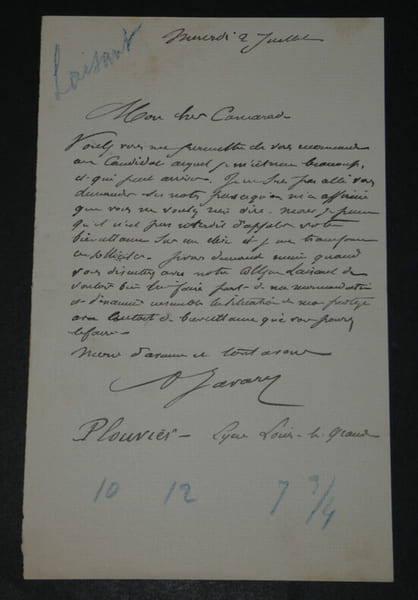 Laisant
Mercredi 2 Juillet
Mon cher Camarade
Voulez vous me permettre de vous recommander
un Candidat auquel je m'intéresse beaucoup,
et qui peut arriver. Je ne suis pas allé vous
demander ses notes parce qu'on m'a affirmé
que vous ne voulez rien dire. mais je pense
qu'il n'est pas interdit d'appeler votre
bienveillance sur un élève et je me
. Je vous demande aussi quand
vous discuterez avec notre collègue Laisant de
vouloir bien lui faire part de ma recommandation
et d'examiner ensemble la situation de mon protégé
avec toute la bienveillance que vous pourrez
le faire -
Merci d'avance et tout à vous
Plouvier - Lycée Louis-le-Grand
10 12 7 3/4